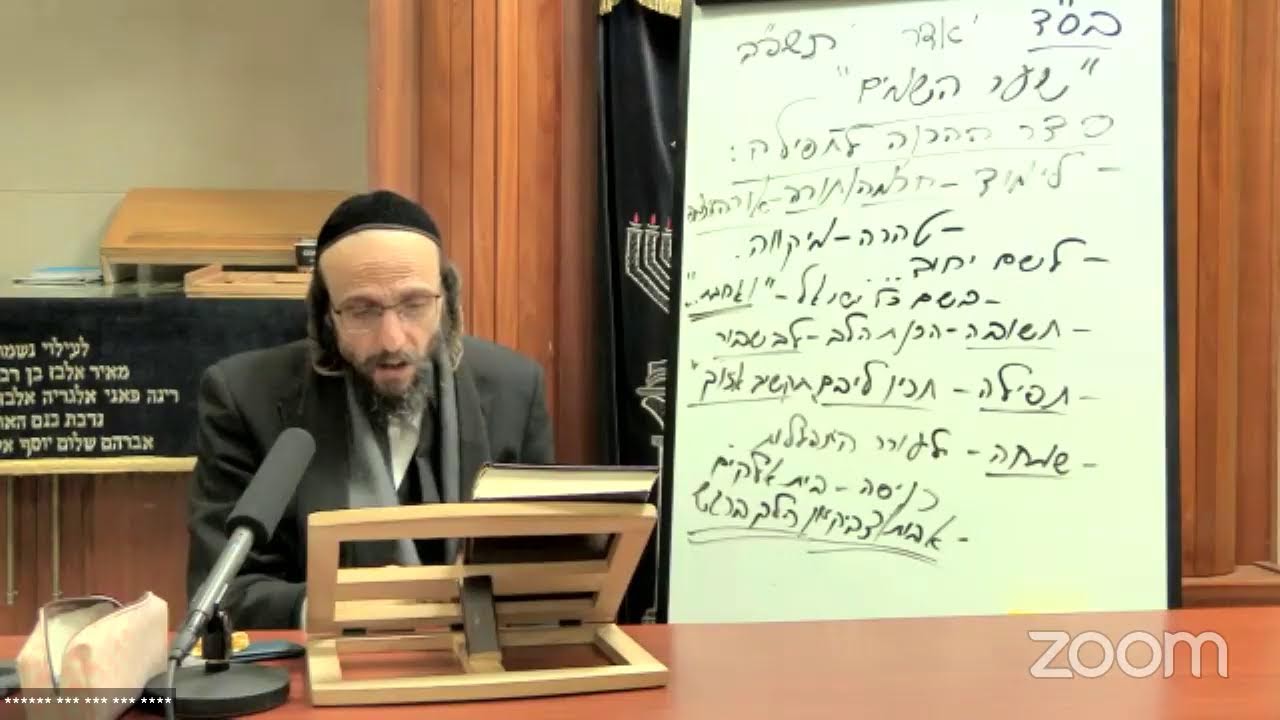 בס"ד 'אדר תשפ"ב
"שער השמים"
סדר ההכנה לתפילה:
- לימוד - חכמה/תורה -
- טהרה - מיקווה.
- לשם יחוד
- בשם כל ישראל - "ואהבת.."
- תשובה - הכנת הלב - לב שבור
- תפילה - תכין ליבם תקשיב אזנך"
- שמחה - לעורר התפעלות
כניסה - בית אלקים
- אבות/צדיקים הלב ברגש
לעילוי נשמת
מאיר אלבז בן רב
רינה פאני אלגריה אלבז
נדבת בנם האו
אברהם שלום יוסף אל
zoom
****** *** *** *** ****